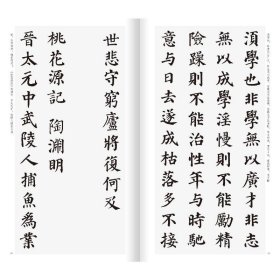 須學也非學無以廣才非志
無以成學淫慢則不能勵精
險躁則不能治性年與時馳
意與日去遂成枯落多不接
世悲守窮廬將復何及
桃花源記 陶淵明
晉太元中武陵人捕魚爲業